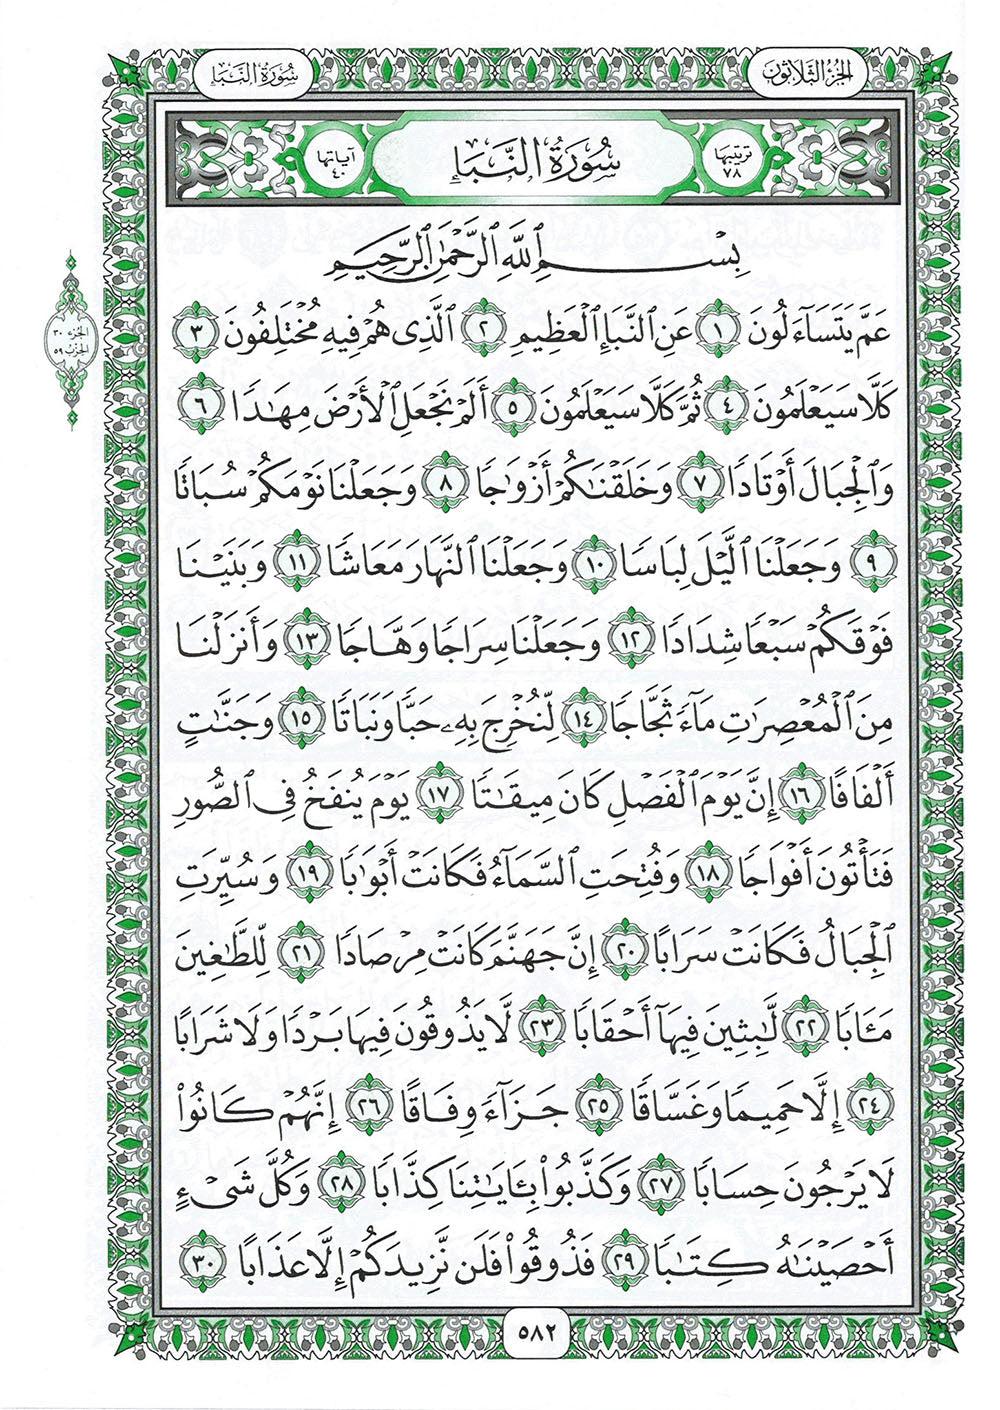 الجزء الثلاثون
سورة النبإ
ترتيبها ٧٨
سُورَةُ النَّبَإِ
آياتها ٤٠
بِسْمِ ٱللَّهِ ٱلرَّحْمَٰنِ ٱلرَّحِيمِ
عَمَّ يَتَسَآءَلُونَ ١ عَنِ ٱلنَّبَإِ ٱلْعَظِيمِ ٢ ٱلَّذِى هُمْ فِيهِ مُخْتَلِفُونَ ٣
الجزء ٣٠
الحزب ٥٩
كَلَّا سَيَعْلَمُونَ ٤ ثُمَّ كَلَّا سَيَعْلَمُونَ ٥ أَلَمْ نَجْعَلِ ٱلْأَرْضَ مِهَٰدًا ٦
وَٱلْجِبَالَ أَوْتَادًا ٧ وَخَلَقْنَٰكُمْ أَزْوَٰجًا ٨ وَجَعَلْنَا نَوْمَكُمْ سُبَاتًا
٩ وَجَعَلْنَا ٱلَّيْلَ لِبَاسًا ١٠ وَجَعَلْنَا ٱلنَّهَارَ مَعَاشًا ١١ وَبَنَيْنَا
فَوْقَكُمْ سَبْعًا شِدَادًا ١٢ وَجَعَلْنَا سِرَاجًا وَهَّاجًا ١٣ وَأَنزَلْنَا
مِنَ ٱلْمُعْصِرَٰتِ مَآءً ثَجَّاجًا ١٤ لِّنُخْرِجَ بِهِۦ حَبًّا وَنَبَاتًا ١٥ وَجَنَّٰتٍ
أَلْفَافًا ١٦ إِنَّ يَوْمَ ٱلْفَصْلِ كَانَ مِيقَٰتًا ١٧ يَوْمَ يُنفَخُ فِى ٱلصُّورِ
فَتَأْتُونَ أَفْوَاجًا ١٨ وَفُتِحَتِ ٱلسَّمَآءُ فَكَانَتْ أَبْوَٰبًا ١٩ وَسُيِّرَتِ
ٱلْجِبَالُ فَكَانَتْ سَرَابًا ٢٠ إِنَّ جَهَنَّمَ كَانَتْ مِرْصَادًا ٢١ لِّلطَّٰغِينَ
مَـَٔابًا ٢٢ لَّٰبِثِينَ فِيهَآ أَحْقَابًا ٢٣ لَّا يَذُوقُونَ فِيهَا بَرْدًا وَلَا شَرَابًا
٢٤ إِلَّا حَمِيمًا وَغَسَّاقًا ٢٥ جَزَآءً وِفَاقًا ٢٦ إِنَّهُمْ كَانُوا۟
لَا يَرْجُونَ حِسَابًا ٢٧ وَكَذَّبُوا۟ بِـَٔايَٰتِنَا كِذَّابًا ٢٨ وَكُلَّ شَىْءٍ
أَحْصَيْنَٰهُ كِتَٰبًا ٢٩ فَذُوقُوا۟ فَلَن نَّزِيدَكُمْ إِلَّا عَذَابًا ٣٠
٥٨٢